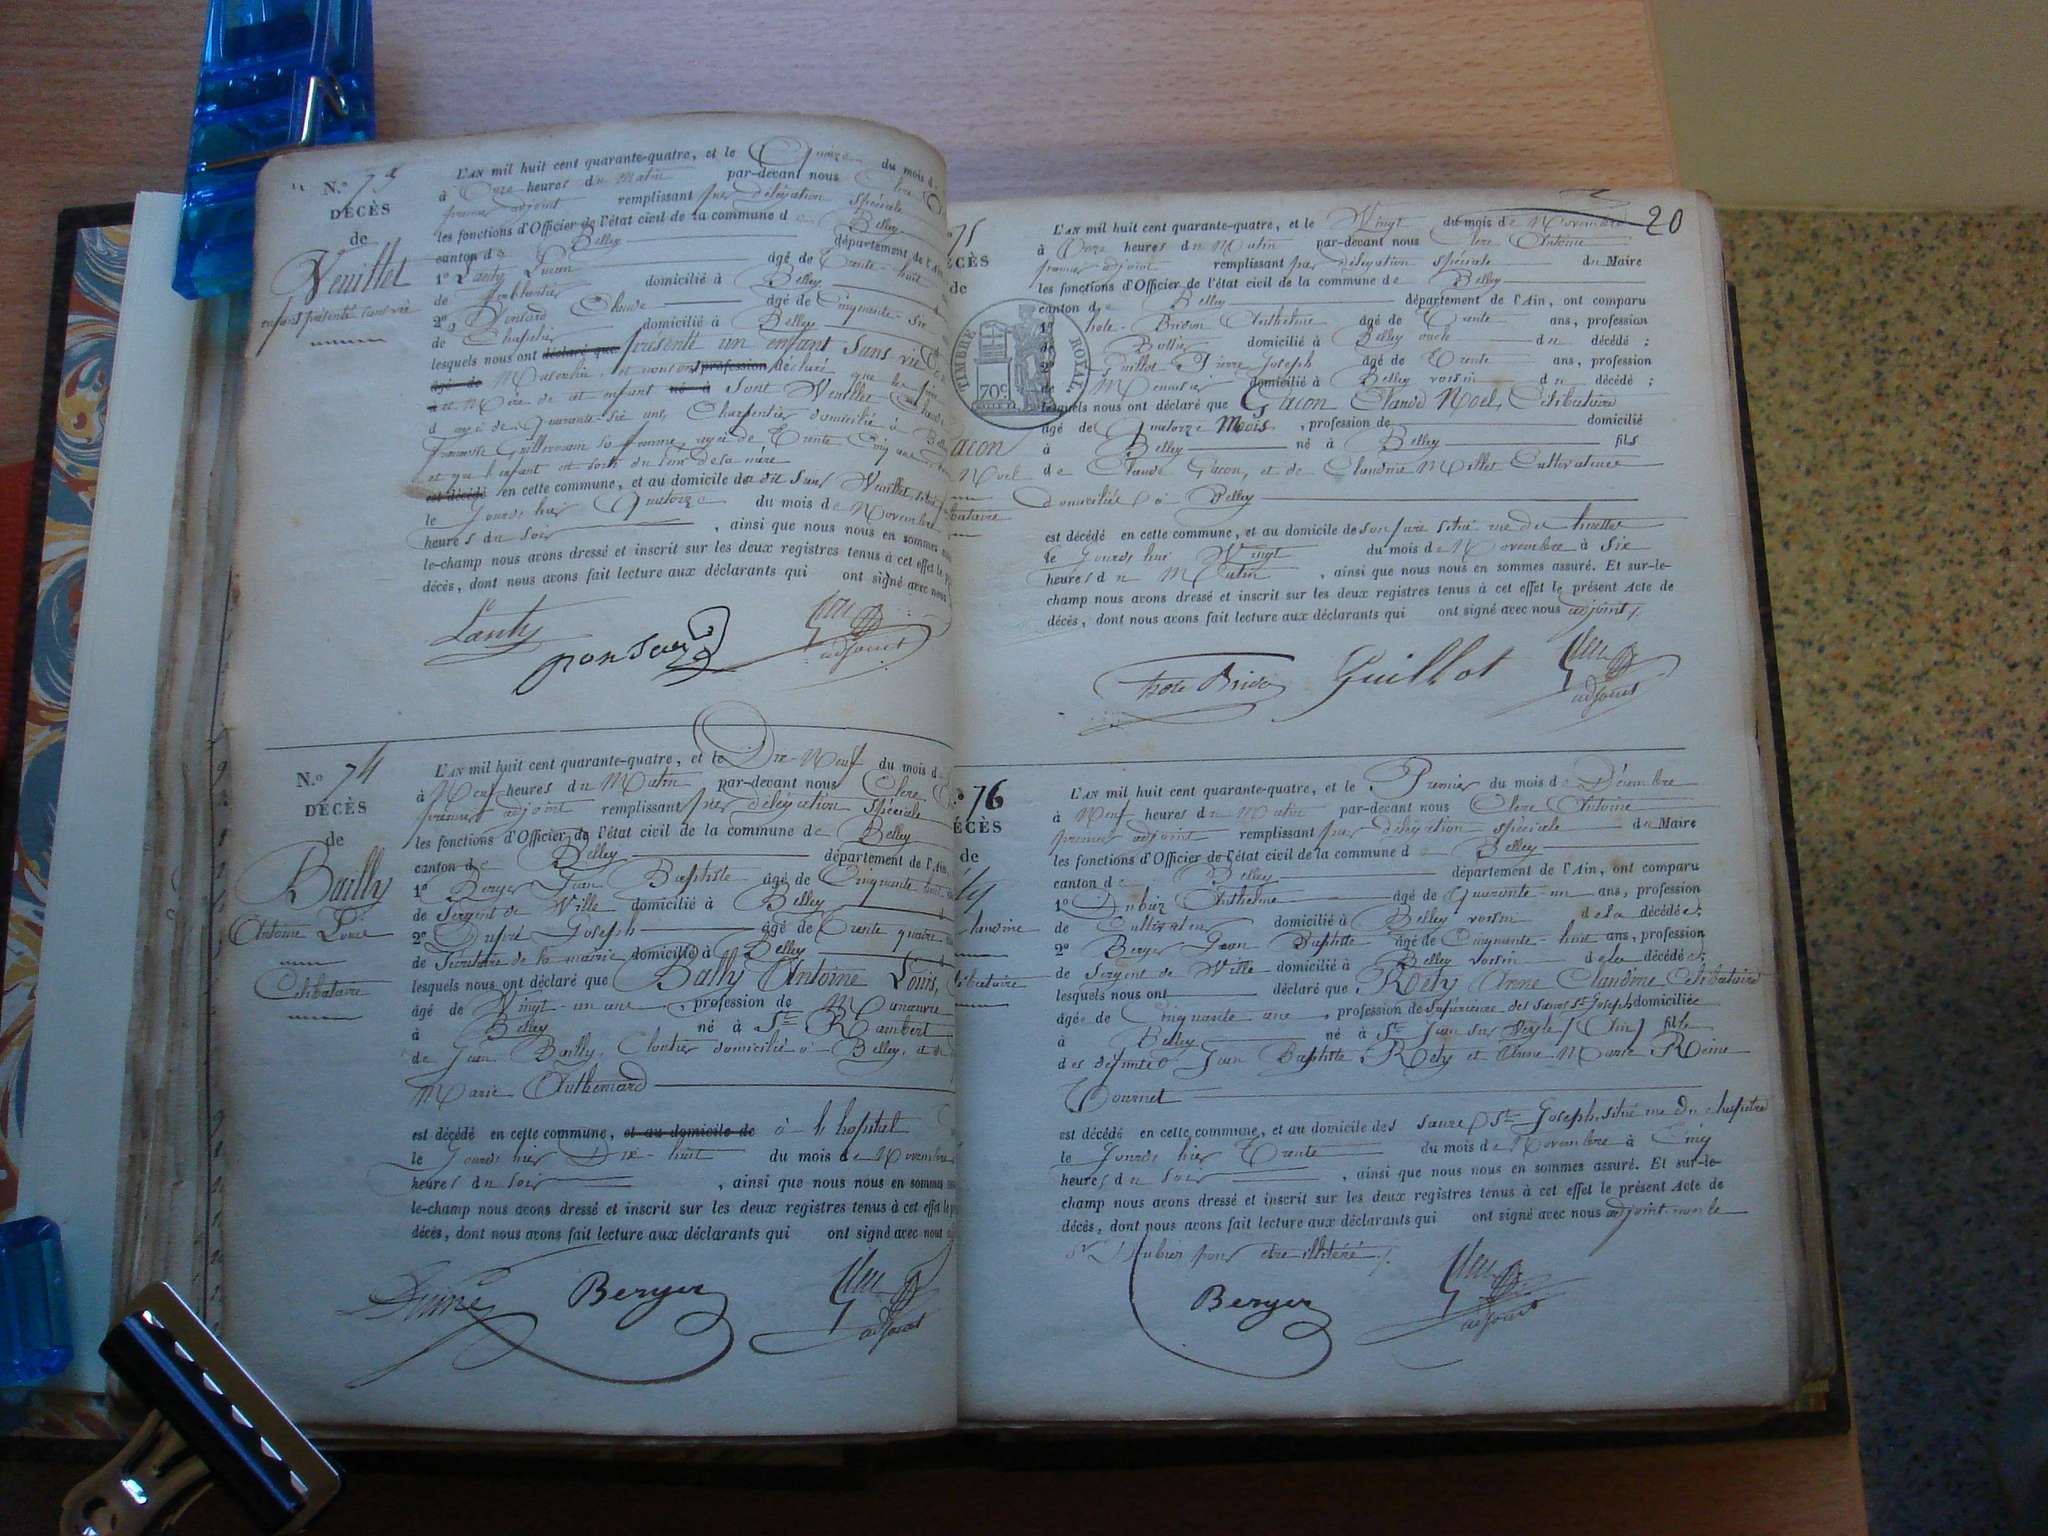 N.º 73
DÉCÈS
de
Veuillet
enfant présenté sans vie
L'AN mil huit cent quarante-quatre, et le Quinze du mois d
à Onze heures du Matin par-devant nous Clerc
premier adjoint remplissant par délégation spéciale
les fonctions d'Officier de l'état civil de la commune de Belley
canton de Belley département de l'Ain
1º Lanty âgé de Trente-huit
de domicilié à Belley
2º Ponsard Claude âgé de Cinquante-six
de Chapelier domicilié à Belley
lesquels nous ont déclaré que présenté un enfant sans vie
âgé de Masculin, et nous ont profession déclaré que les père
à et Mère de cet enfant né à sont Veuillet Claude
âgé de Quarante-six ans, Charpentier domicilié à Belley
sa femme, âgée de Trente Cinq ans
et que l'enfant est sorti du sein de sa mère
est décédé en cette commune, et au domicile du dit Sieur Veuillet
le Jourd'hier Quatorze du mois de Novembre
heures du soir , ainsi que nous nous en sommes
le-champ nous avons dressé et inscrit sur les deux registres tenus à cet effet le
décès, dont nous avons fait lecture aux déclarants qui ont signé avec nous
Lanty
ponsard
adjoint
N.º 74
DÉCÈS
de
Bailly
Antoine Louis
Célibataire
L'AN mil huit cent quarante-quatre, et le Dix-Neuf du mois d
à Neuf heures du Matin par-devant nous Clerc
premier adjoint remplissant par délégation spéciale
les fonctions d'Officier de l'état civil de la commune de Belley
canton de Belley département de l'Ain,
1º Berger Jean Baptiste âgé de Cinquante huit
de Sergent de Ville domicilié à Belley
2º Dupré Joseph âgé de Trente quatre
de Secrétaire de la mairie domicilié à Belley
lesquels nous ont déclaré que Bally Antoine Louis,
âgé de Vingt-un ans, profession de Manœuvre
à Belley né à St Rambert
de Jean Bailly, Cloutier domicilié à Belley, et de
Marie Anthemard
est décédé en cette commune, et au domicile de à l'hopital
le Jourd'hier Dix-huit du mois de Novembre
heures du soir , ainsi que nous nous en sommes
le-champ nous avons dressé et inscrit sur les deux registres tenus à cet effet le
décès, dont nous avons fait lecture aux déclarants qui ont signé avec nous
Berger
adjoint
20
75
ÉCÈS
de
acon
Noel
ibataire
TIMBRE ROYAL
70 c
L'AN mil huit cent quarante-quatre, et le Vingt du mois de Novembre
à Onze heures du Matin par-devant nous Clerc Antoine
premier adjoint remplissant par délégation spéciale du Maire
les fonctions d'Officier de l'état civil de la commune de Belley
canton de Belley département de l'Ain, ont comparu
1º Brison Anthelme âgé de Trente ans, profession
de Bottier domicilié à Belley oncle du décédé ;
2º Guillot Pierre Joseph âgé de Trente ans, profession
de Menuisier domicilié à Belley voisin du décédé ;
lesquels nous ont déclaré que Gacon Claude Noel, Célibataire
âgé de Quatorze Mois , profession de domicilié
à Belley né à Belley fils
de Claude Gacon, et de Claudine Millet Cultivateurs
domiciliés à Belley
est décédé en cette commune, et au domicile de son père situé rue des
le Jourd'hui Vingt du mois de Novembre à Six
heures du Matin , ainsi que nous nous en sommes assuré. Et sur-le-
champ nous avons dressé et inscrit sur les deux registres tenus à cet effet le présent Acte de
décès, dont nous avons fait lecture aux déclarants qui ont signé avec nous adjoint
Guillot
adjoint
º 76
ÉCÈS
de
ély
laudine
libataire
L'AN mil huit cent quarante-quatre, et le Premier du mois de Décembre
à Neuf heures du Matin par-devant nous Clerc Antoine
premier adjoint remplissant par délégation spéciale du Maire
les fonctions d'Officier de l'état civil de la commune de Belley
canton de Belley département de l'Ain, ont comparu
1º Dubier Anthelme âgé de Quarante-un ans, profession
de Cultivateur domicilié à Belley voisin de la décédée ;
2º Berger Jean Baptiste âgé de Cinquante-huit ans, profession
de Sergent de Ville domicilié à Belley voisin de la décédée ;
lesquels nous ont déclaré que Rély Anne Claudine Célibataire
âgée de Cinquante ans , profession de Supérieure des Sœurs St Joseph domiciliée
à Belley né à St Jean sur Veyle (Ain) fille
des défunts Jean Baptiste Rély et Anne Marie Reine
Tournel
est décédé en cette commune, et au domicile des Sœurs St Joseph, situé rue du chapitre
le Jourd'hier Trente du mois de Novembre à Cinq
heures du soir , ainsi que nous nous en sommes assuré. Et sur-le-
champ nous avons dressé et inscrit sur les deux registres tenus à cet effet le présent Acte de
décès, dont nous avons fait lecture aux déclarants qui ont signé avec nous adjoint non le
Sr Dubier pour être illitéré
Berger
adjoint